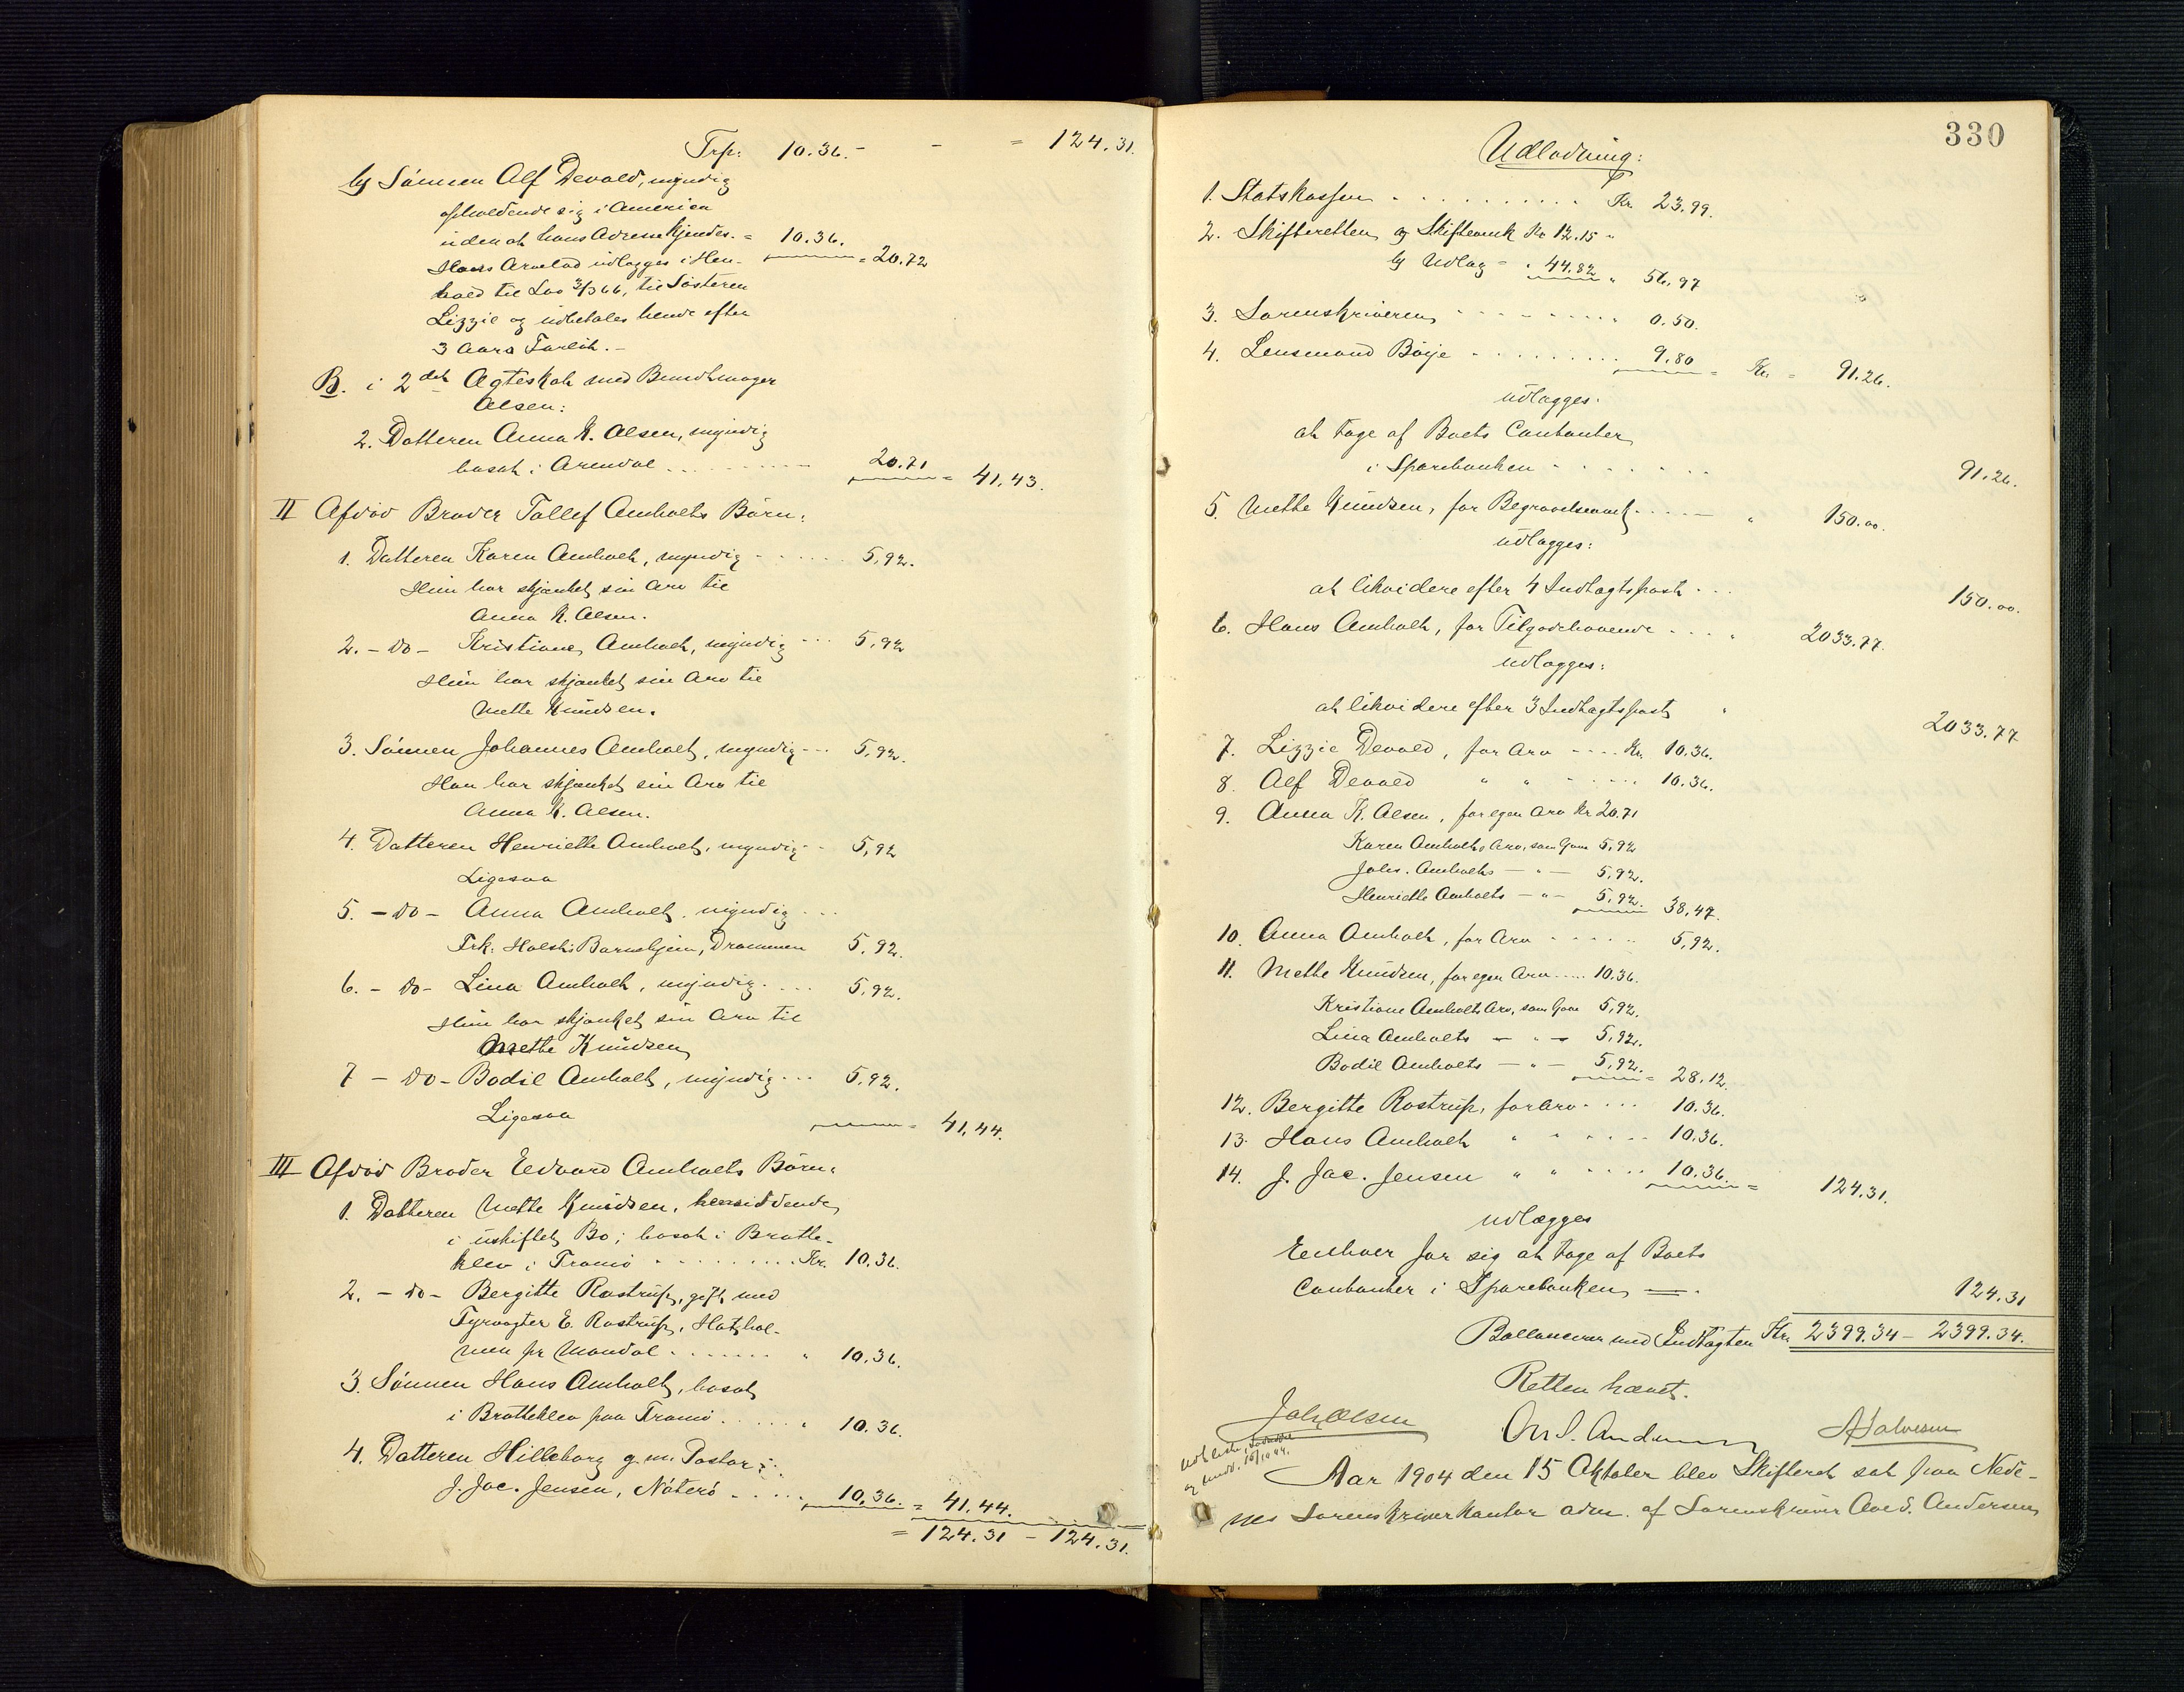 Trp: 10.36. - - = 124.31.
b) Sønnen Alf Devold, myndig
opholdende sig i America
uden at hans Adresse kjendes. = 10.36.
Hans Arvelod udlægges i Hen- = 20.72
hold til Lov 3/3 66, til Søsteren
Lizzie og udbetales hende efter
3 Aars Forløb. -
B. i 2det Ægteskab med Bundtmager
Olsen:
2. Datteren Anna K. Olsen, myndig
bosat i Arendal . . . . 20.71 = 41,43.
II Afdød Broder Tollef Amholts Børn:
1. Datteren Karen Amholt, myndig . . . . 5,92.
Hun har skjænket sin Arv til
Anna K. Olsen.
2. - do - Kristiane Amholt, myndig . . . 5,92
Hun har skjænket sin Arv til
Mette Knudsen.
3. Sønnen Johannes Amholt, myndig . . . 5,92.
Han har skjænket sin Arv til
Anna K. Olsen.
4. Datteren Henriette Amholt, myndig . . 5,92
Ligesaa
5. - do - Anna Amholt, myndig . . .
Frk: Holsts Barnehjem, Drammen 5,92.
6. - do - Lina Amholt, myndig . . . . 5,92.
Hun har skjænket sin Arv til
Mette Knudsen
7 - do - Bodil Amholt, myndig . . . 5,92.
Ligesaa = 41,44.
III Afdød Broder Edvard Amholts Børn:
1. Datteren Mette Knudsen, hensiddende
i uskiftet Bo; bosat i Bratte-
klev i Tromø . . . . . . . . . Kr. 10.36.
2. - do - Bergitte Rostrup, gift med
Fyrvogter E. Rostrup, Hatshol-
men pr Mandal . . . . . . . " 10.36.
3. Sønnen Hans Amholt, bosat
i Bratteklev paa Tromø . . . . . " 10.36.
4. Datteren Hilleborg g. m. Pastor
J. Jac. Jensen, Nøterø . . . . . 10,36. = 41,44.
= 124.31 - 124.31.
330
Udlodning:
1. Statskassen . . . . . . . . . . . Kr. 23.99.
2. Skifteretten a) Skiftesmk Kr 12.15 -
b) Udlæg - " 44.82 " 56,97
3. Sorenskriveren . . . . . . . . . . 0.50.
4. Lensmand Bøije . . . . . . . . . 9.80 = Kr. = 91.26.
udlægges:
at tage af Boets Contanter
i Sparebanken . . . . . . . 91.26.
5. Mette Knudsen, for Begravelsesomk. . . . . " 150.00.
udlægges:
at likvidere efter 4 Indtægtspost . . . 150.00.
6. Hans Amholt, for Tilgodehavende . . . . " 2033.77.
udlægges:
at likvidere efter 3 Indtægtspost " 2033.77
7. Lizzie Devold, for Arv . . . . Kr. 10.36.
8. Alf Devold " " . . . . . 10.36.
9. Anna K. Olsen, for egen Arv Kr 20.71
Karen Amholts Arv, som Gave 5,92
Johs. Amholts - " - 5,92.
Henriette Amholts - " - 5,92. 38,47.
10. Anna Amholt, for Arv . . . . . . 5,92.
11. Mette Knudsen, for egen Arv . . . . . 10.36.
Kristiane Amholts Arv, som Gave 5,92.
Lina Amholts - " - 5,92.
Bodil Amholts - " - 5,92. = 28.12.
12. Bergitte Rostrup, for Arv . . . . 10.36.
13. Hans Amholt " " . . . . . 10.36.
14. J. Jac. Jensen " " . . . . . 10.36. = 124.31.
udlægges
Enhver for sig at tage af Boets
Contanter i Sparebanken = . 124.31
Ballancerer med Indtægten Kr. 2399.34 - 2399.34.
Retten hævet.
Joh. Olsen Ove S. Andersen A. Halvorsen
Aar 1904 den 15 Oktober blev Skifteret sat paa Nede-
nes Sorenskriverkontor adm. af Sorenskriver Ove S. Andersen